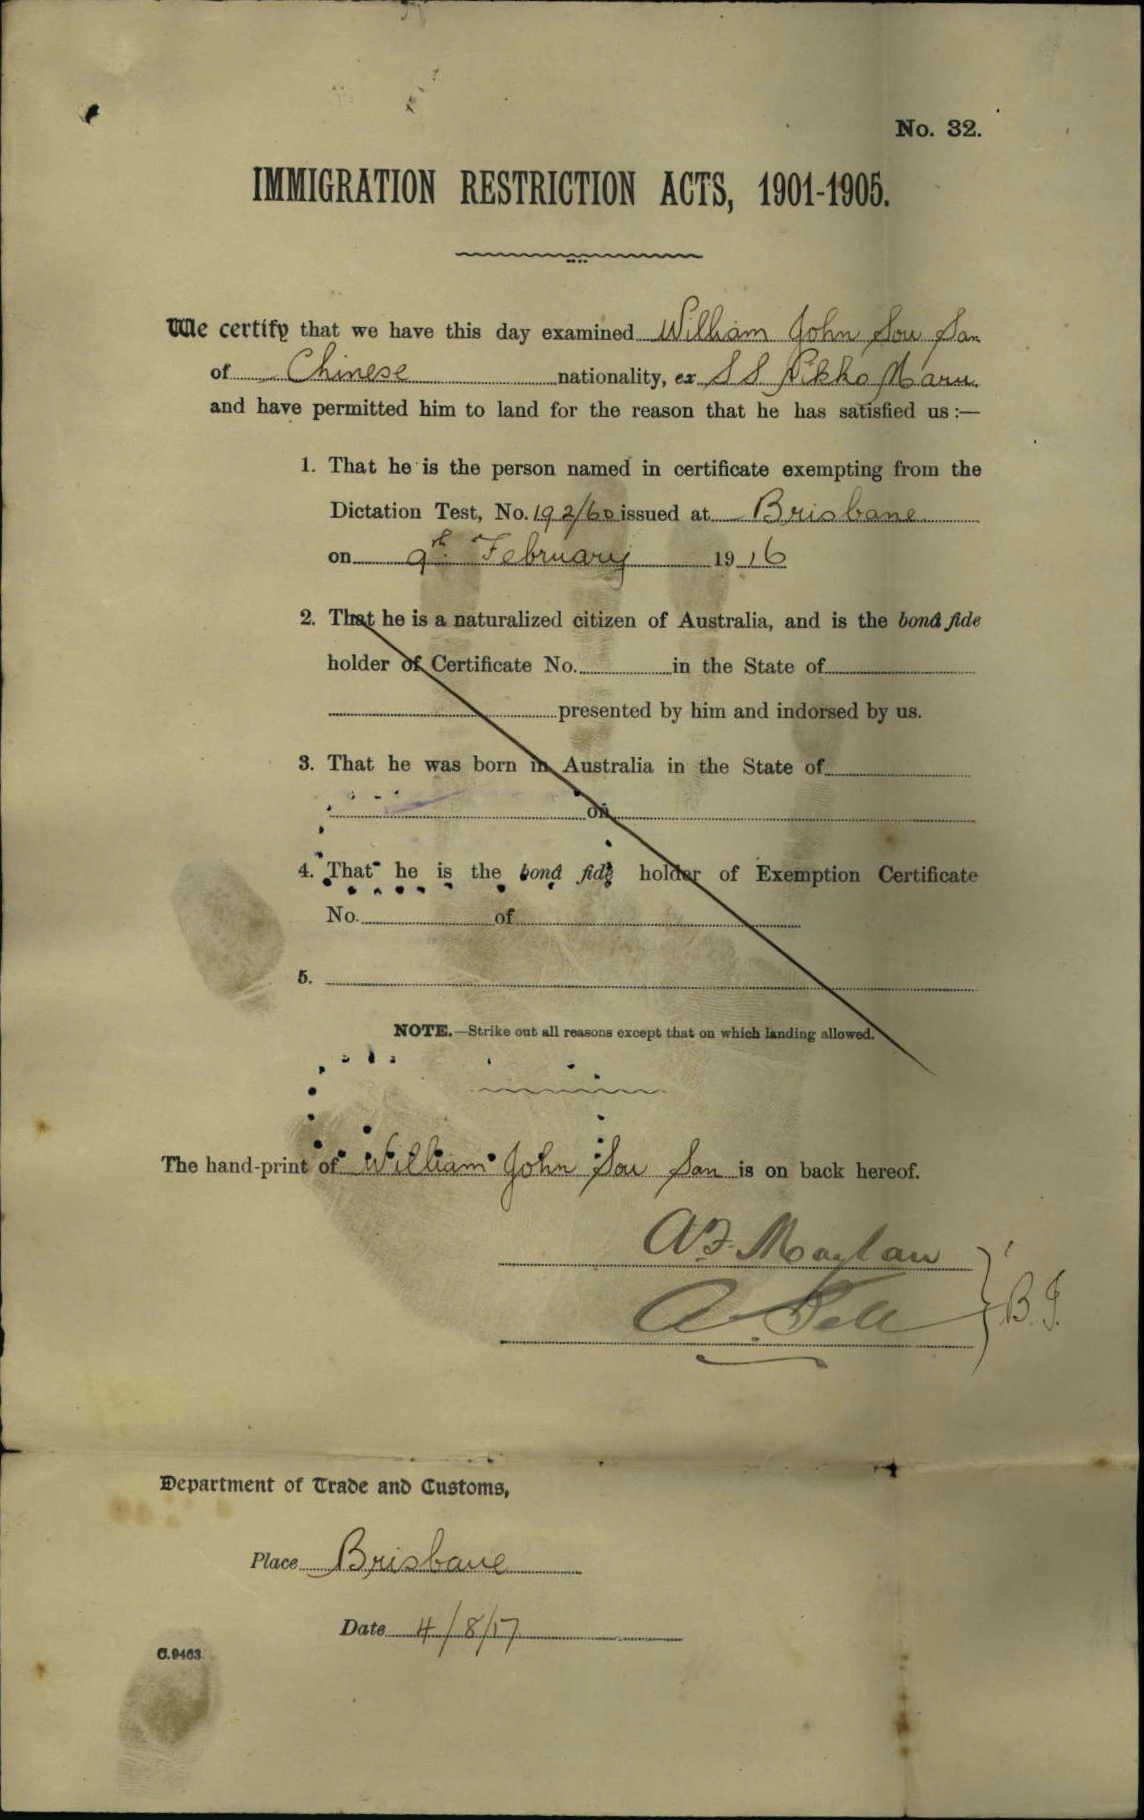 No. 32.
IMMIGRATION RESTRICTION ACTS, 1901-1905.
We certify that we have this day examined William John Sou San
of Chinese nationality, ex S S Nikko Maru
and have permitted him to land for the reason that he has satisfied us :—
1. That he is the person named in certificate exempting from the
Dictation Test, No. 192/60 issued at Brisbane
on 9th February 1916
2. That he is a naturalized citizen of Australia, and is the bonâ fide
holder of Certificate No. in the State of
presented by him and indorsed by us.
3. That he was born in Australia in the State of
on
4. That he is the bonâ fide holder of Exemption Certificate
No. of
5.
NOTE.—Strike out all reasons except that on which landing allowed.
The hand-print of William John Sou San is on back hereof.
A.F.
A
B.I.
Department of Trade and Customs,
Place Brisbane
Date 4/8/17
C.9463